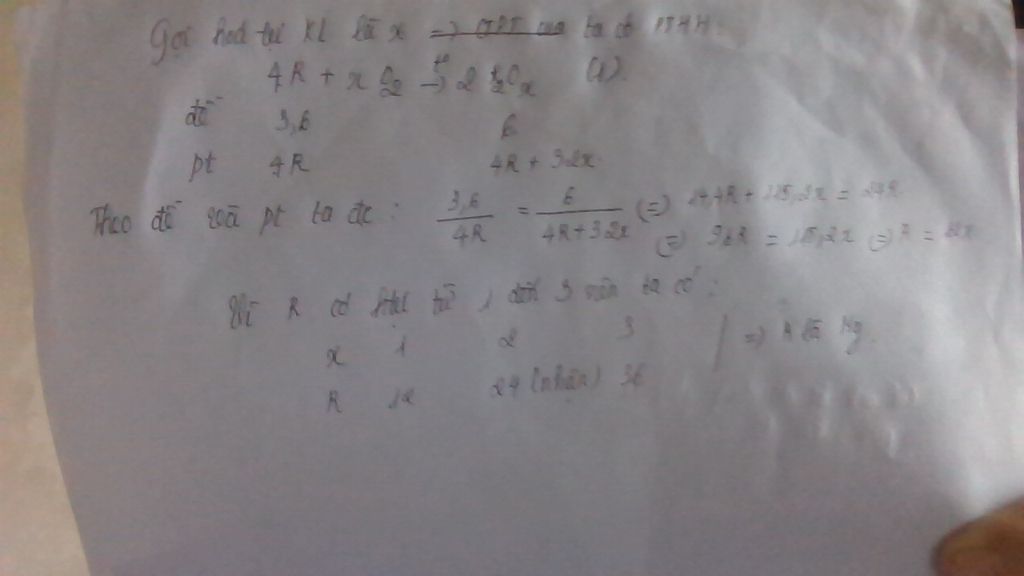 Gọi hoá trị KL là x => CTPT của ta có PTHH:
4R + x O2 -t°-> 2 R2Ox (1).
đề 3,6 6
pt 4R 4R + 32x
Theo đề và pt ta đc : 3,6/4R = 6/4R+32x (=) 14,4R + 115,2x = 24R
(=) 9,6R = 115,2x (=) R = 12x
Vì R có htrị từ 1 đến 3 nên ta có :
x 1 2 3
R 12 24 (nhận) 36 => R là Mg.